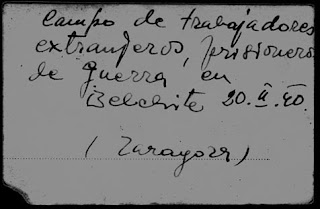 Campo de trabajadores
extranjeros, prisioneros
de guerra en
Belchite 20. II. 40.
(Zaragoza)